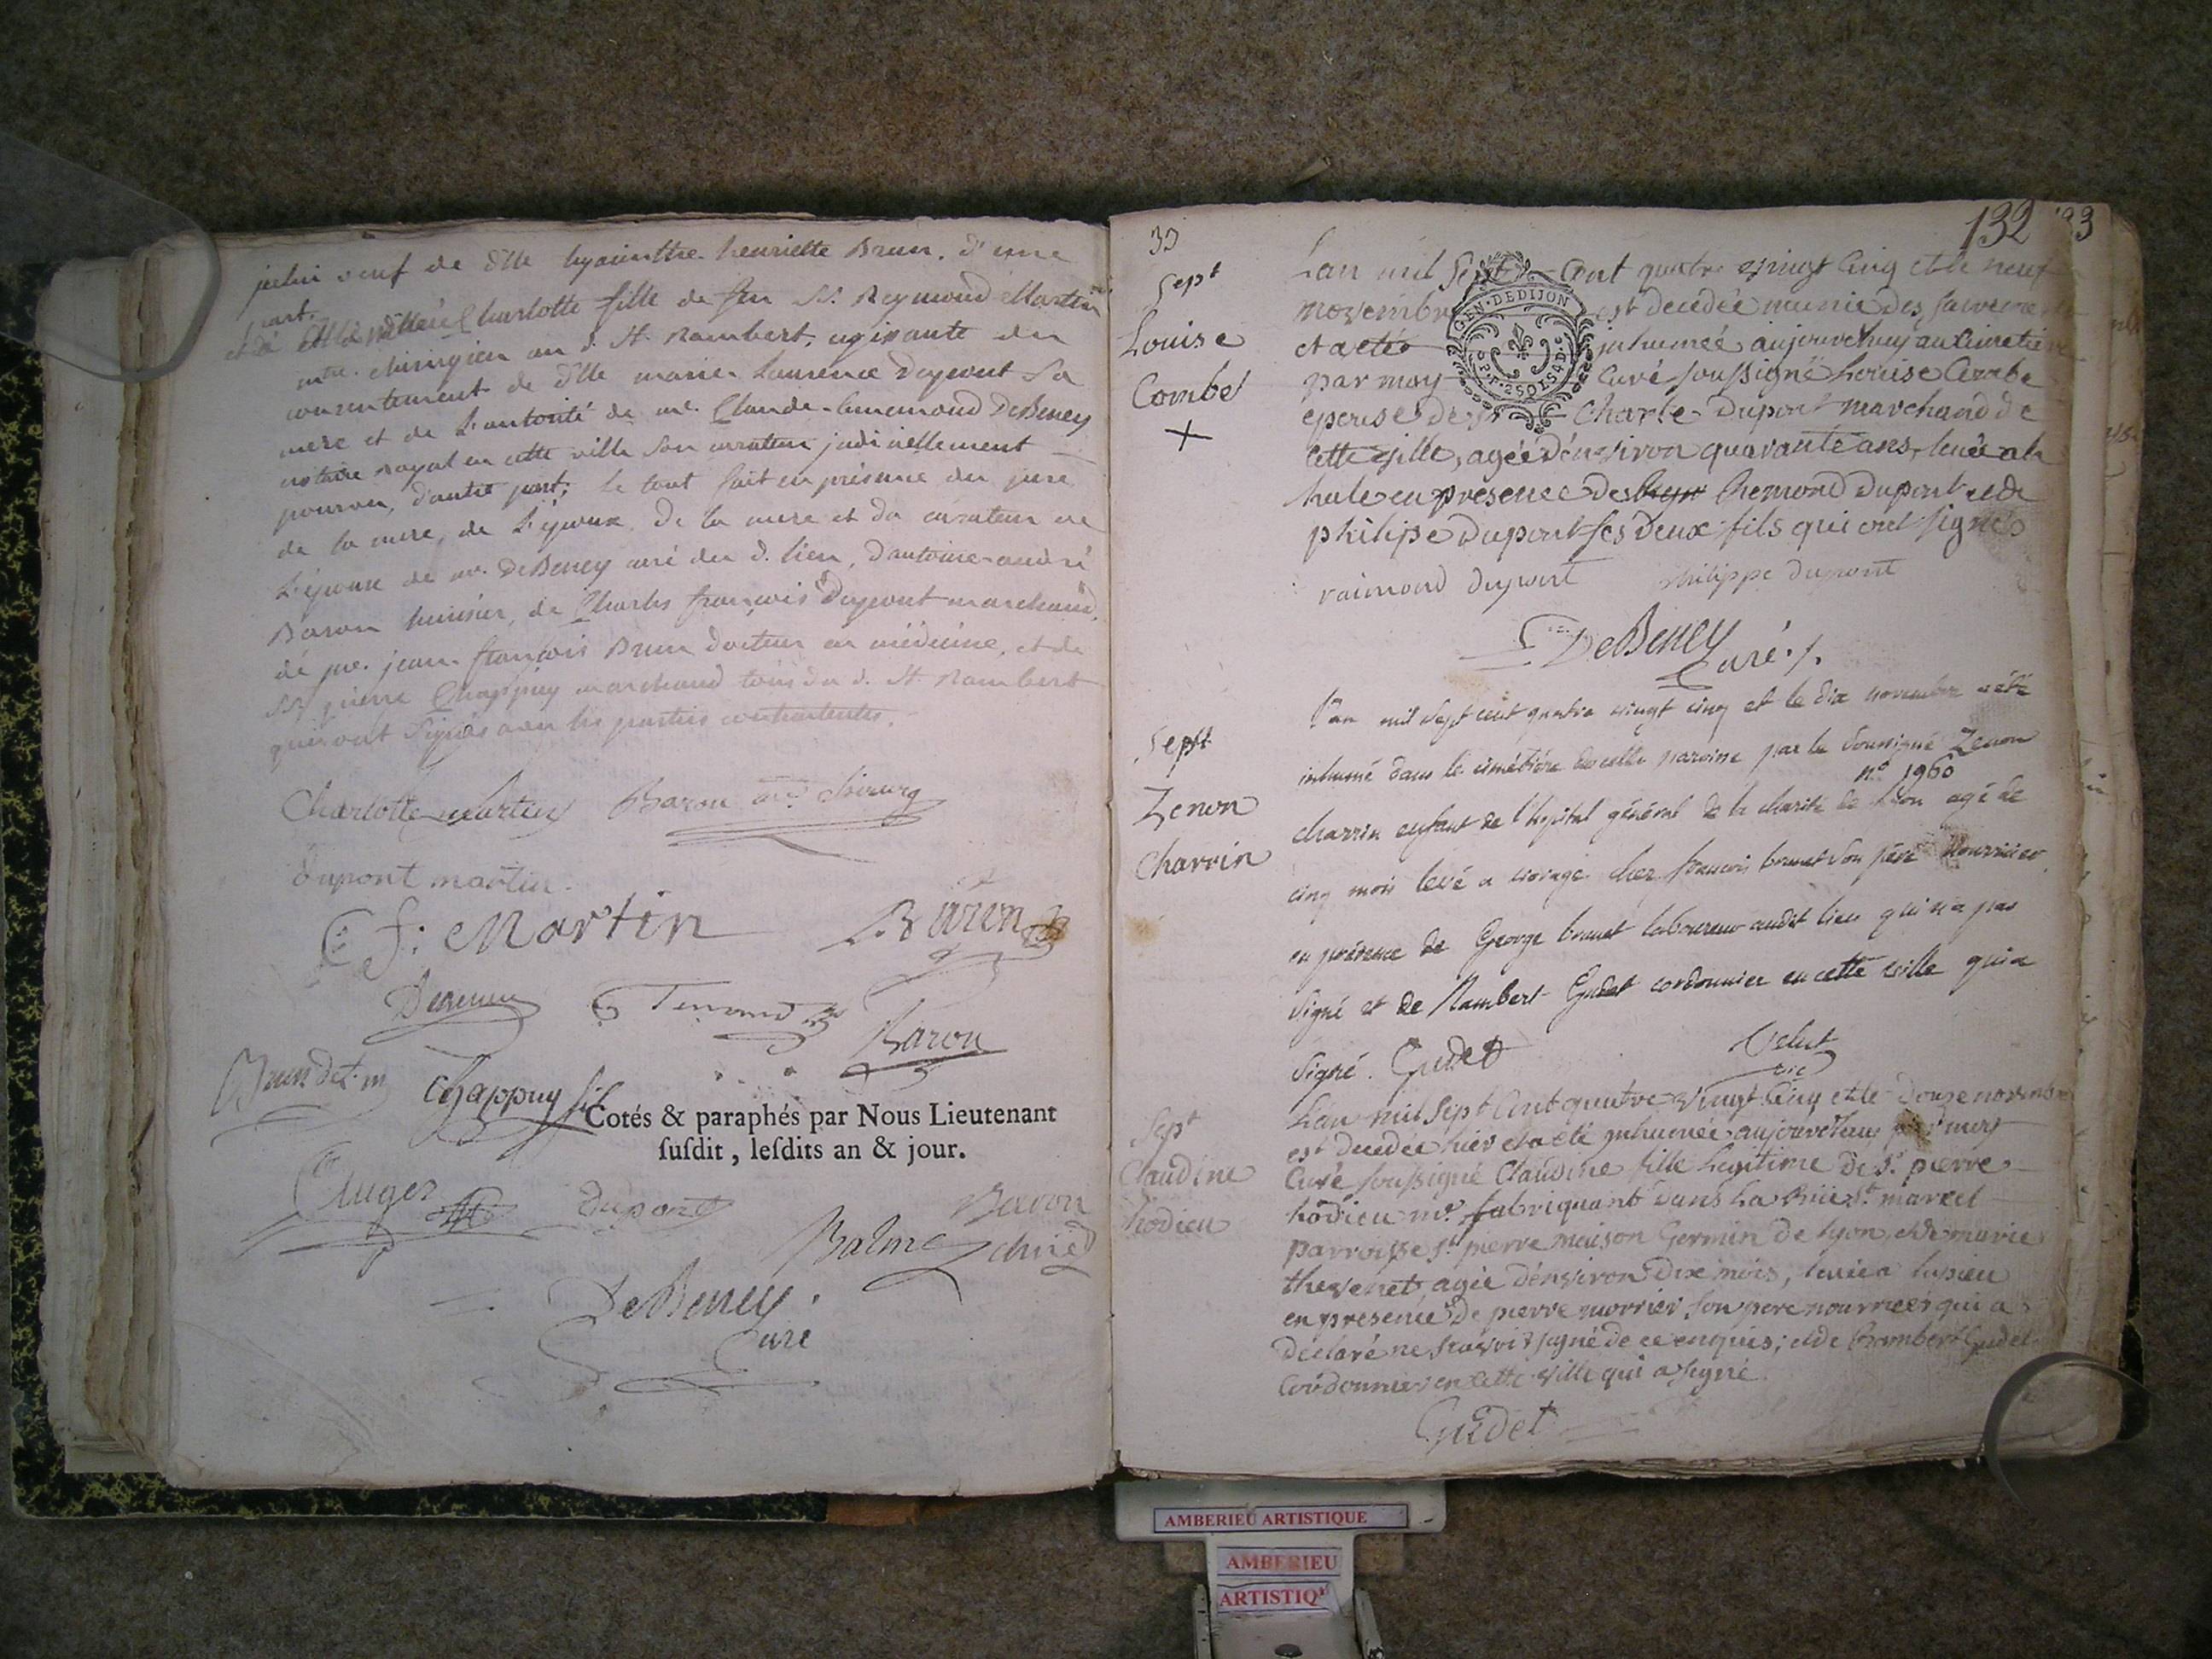 veuf de dlle hyacinthe henriette Brun, d'une
part.
et Charlotte fille de feu Sr. Reymond Martin
chirurgien au d. St. Rambert, agissante du
consentement de dlle marie Laurence Dupont Sa
mere et de L'autorité de me. Claude DeBeney
notaire royal en cette ville son curateur judiciellement
pourvu, d'autre part; le tout fait en présence du pere
de la mere, de L'époux, De la mere et du curateur de
L'épouse de mr. DeBeney curé du d. lieu, d'antoine andré
Baron huissier, de Charles françois Dupont marchand,
de me. jean françois Brun docteur en médecine, et de
Sr pierre Chappuy marchand tous du d. St Rambert
qui ont Signés avec les parties contractantes.
Charlotte martin Baron
dupont martin.
C f: Martin
Baron
Brun d. m Chappuy fils
Cotés & paraphés par Nous Lieutenant
susdit, lesdits an & jour.
Auger dupont Baron
DeBeney.
Curé
132
33
Sept
Louise
Combet
+
GEN. DE DIJON
Lan mil Sept Cent quatre vingt Cinq et le neuf
novembre est decedée munie des sacremens
et a eté inhumée aujourdhuy au Cimetiere
par moy Curé soussigné Louise Combe
epouse de Sr Charle Dupont marchand de
cette ville, agée d'environ quarante ans, levée a la
hale en presence des Remond Dupont et de
philipe Dupont ses deux fils qui ont signés
raimond dupont philippe dupont
DeBeney
Curé
Sept
Zenon
Charvin
l'an mil sept cent quatre vingt cinq et le dix novembre a été
inhumé dans le cimétière de cette paroisse par le soussigné Zenon
n.º 1960
charvin enfant de l'hopital général de la charité de Lion agé de
cinq mois levé a chez françois brunet son père nourricier
en présence de George brunet laboureur audit lieu qui n'a pas
signé et de Rambert Gudet cordonnier en cette ville qui a
signé. Gudet Velut
vic
Sept
Claudine
hodieu
Lan mil Sept Cent quatre vingt Cinq et le douze novembre
est decedée hier et a eté inhumée aujourdhuy par moy
Curé soussigné Claudine fille Legitime de Sr pierre
hodieu me. fabriquant dans La Rüe St marcel
parroisse St pierre maison Germin de lyon, et de marie
thevenet, agée d'environ dix mois, levée a
en presence de pierre morrier son pere nourricier qui a
déclaré ne sçavoir signé de ce enquis; et de Rambert Gudet
Cordonnier en cette ville qui a signé.
Gudet
AMBERIEU ARTISTIQUE
AMBERIEU
ARTISTIQ